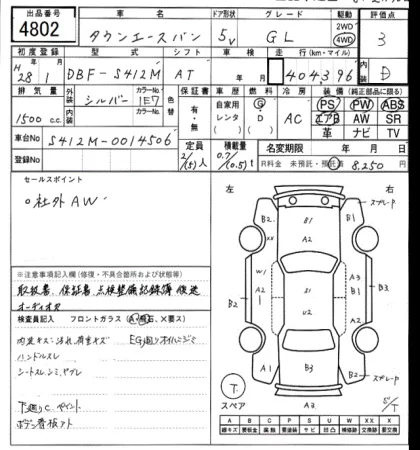 出品番号 車名 ドア形状 グレード 駆動 評価点
4802 タウンエースバン 5V GL 2WD 4WD 3
初度登録 型式 シフト 車検 走行(km・マイル) 内装
H28 1 DBF-S412M AT 年 月 404,396 D
排気量 外装 カラーNo. 色替 保証書 車歴 燃料 冷房 装備(純正部品に限る)
1500 cc シルバー 1E7 有・無 自家用 レンタ G・D AC PS PW ABS
エアB AW SR
革 ナビ TV
車台No S412M-0014506
登録No
定員 2/(5)人 積載量 0.7/(0.5)t 名変期限 年 月 日
R料金 未預託・預託済 8,250円
セールスポイント
○社外AW
左 右
B2 B1 B1 スプレーP
XX A2
W1 A2 S1 U2 A3 B1
B2 B3
A1 B3 A2 スプレーP
A3
※注意事項記入欄(修復・不具合箇所および状態等)
取扱書、保証書、点検整備記録簿 後送
オーディオX
検査員記入 フロントガラス (A・飛石、X要ス)
内装キズ・汚れ、荷室キズ EG廻りオイルニジミ
ハンドルスレ
シートスレ、シミ、ヤブレ
下廻りC、ペイント
ボデー看板アト
T
スペア
5/T
A B C P S U W X XX X
線キズ 要板金 腐触 要塗装 サビ 凹凸 補修跡 要交換 交換済